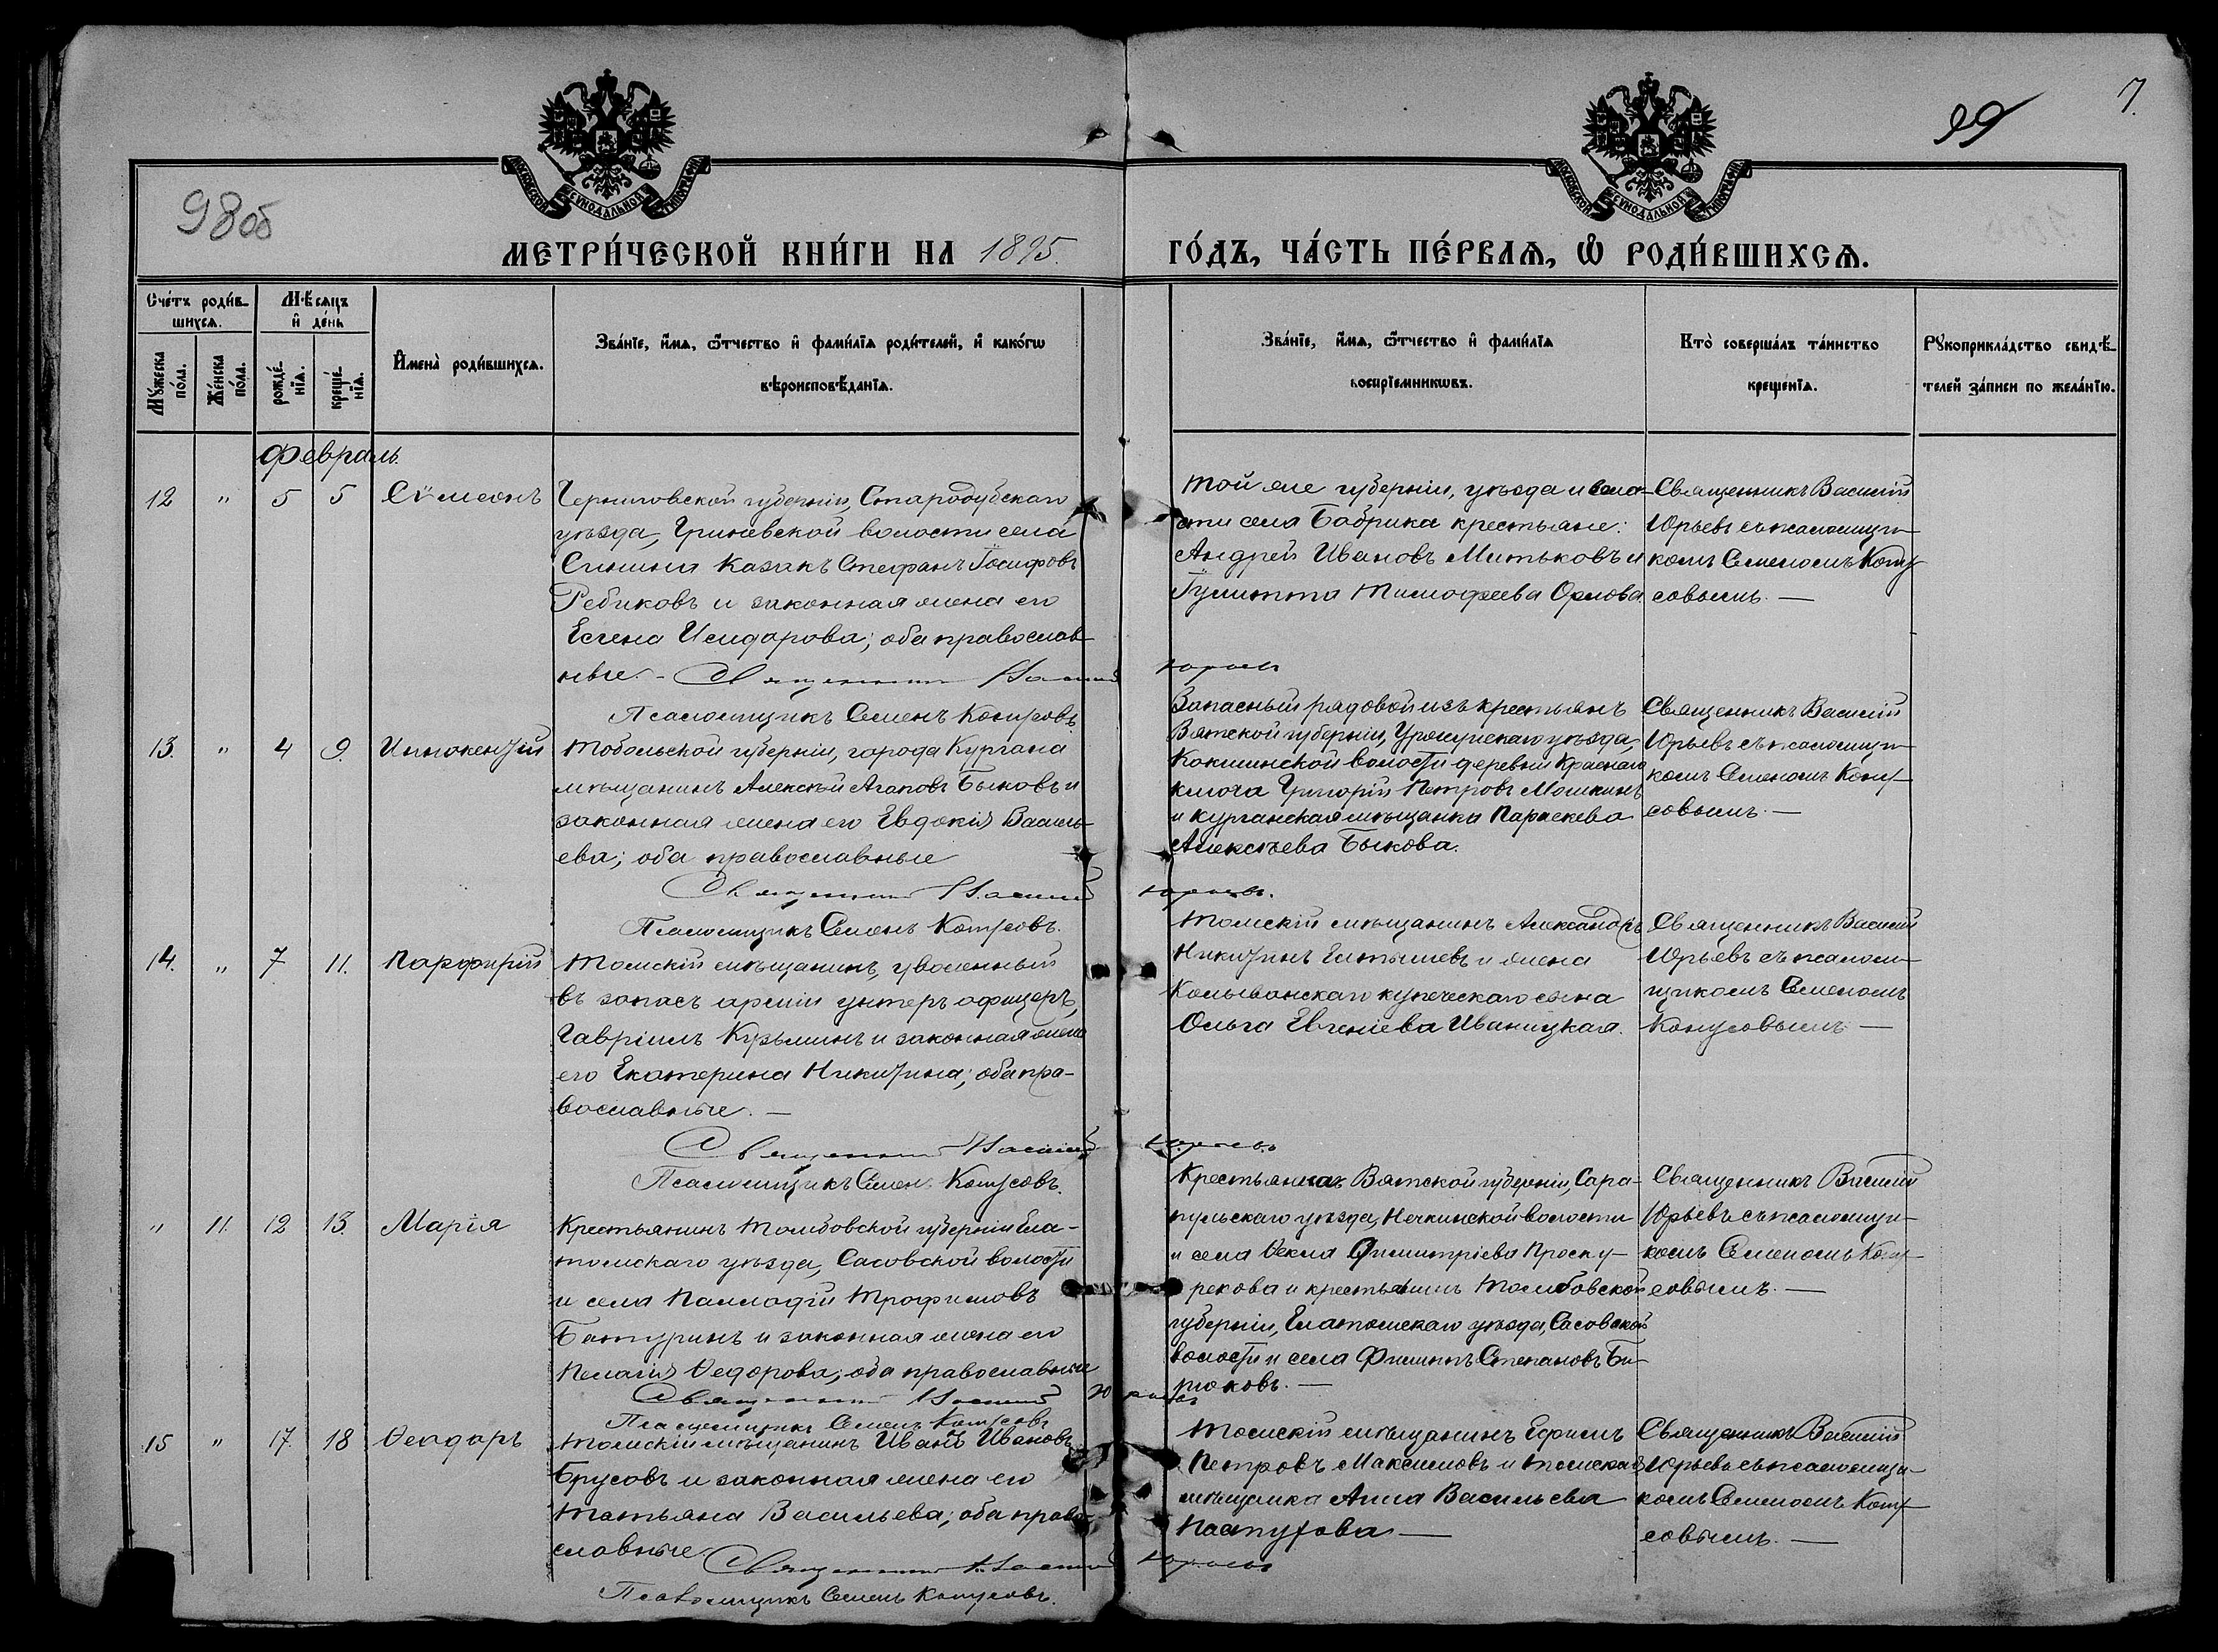 7.
99
98 об
МОСКОВСКОЙ СѴНОДАЛЬНОЙ ТИПОГРАФІИ
МОСКОВСКОЙ СѴНОДАЛЬНОЙ ТИПОГРАФІИ
МЕТРИ́ЧЕСКОЙ КНИ́ГИ НА 1895. ГО́ДЪ, ЧА́СТЬ ПЕ́РВАѦ, Ѡ РОДИ́ВШИХСѦ.
Сче́тъ роди́в-
шихсѧ.
Мѣ́сѧцъ
и де́нь
Мꙋ́жеска
по́ла.
Же́нска
по́ла.
рожде́-
нїѧ.
креще́-
нїѧ.
И҆мена̀ роди́вшихсѧ.
Зва́нїе, и҆́мѧ, ѻ҆́тчество и҆ фами́лїѧ роди́телей, и҆ како́гѡ
вѣроисповѣ́данїѧ.
Зва́нїе, и҆́мѧ, ѻ҆́тчество и҆ фами́лїѧ
воспрїемникѡвъ.
Кто̀ соверша́лъ та́инство
креще́нїѧ.
Рꙋкоприкла́дство свидѣ́-
телей за́писи по жела́нїю.
Февраль.
12 " 5 5 Сѵмеонъ
Черниговской губерніи, Стародубскаго
уѣзда, Гриневской волости села
Синина казакъ Стефанъ Іосифовъ
Ребиковъ и законная жена его
Елена Исидорова; оба православ-
ные. - Священникъ Василій Юрьевъ
Псаломщикъ Семенъ Котусовъ.
Той же губерніи, уѣзда и воло-
сти села Бобрика крестьяне:
Андрей Ивановъ Митьковъ и
Іулитта Тимофеева Орлова.
Священникъ Василій
Юрьевъ съ псаломщи-
комъ Семеномъ Коту-
совымъ. —
13. " 4 9. Иннокентій
Тобольской губерніи, города Кургана
мѣщанинъ Алексѣй Агаповъ Быковъ и
законная жена его Евдокія Василь-
ева; оба православные
Священникъ Василій Юрьевъ.
Псаломщикъ Семенъ Котусовъ.
Запасный рядовой изъ крестьянъ
Вятской губерніи, Уржумскаго уѣзда,
Кокшинской волости деревни Краснаго
ключа Григорій Петровъ Мошкинъ
и курганская мѣщанка Параскева
Алексѣева Быкова.
Священникъ Василій
Юрьевъ съ псаломщи-
комъ Семеномъ Коту-
совымъ. —
14. " 7 11. Парфирій
Томскій мѣщанинъ, уволенный
въ запасъ арміи унтеръ офицеръ,
Гавріилъ Кузьминъ и законная жена
его Екатерина Никитина; оба пра-
вославные. —
Священникъ Василій Юрьевъ.
Псаломщикъ Семенъ Котусовъ.
Томскій мѣщанинъ Александръ
Никитинъ и жена
Колыванскаго купеческаго сына
Ольга Евгеніева Иваницкая.
Священникъ Василій
Юрьевъ съ псалом-
щикомъ Семеномъ
Котусовымъ —
" 11. 12 13. Марія
Крестьянинъ Тамбовской губерніи Ела-
томскаго уѣзда, Сасовской волости
и села Палладій Трофимовъ
Батуринъ и законная жена его
Пелагія Ѳедорова; оба православные
Священникъ Василій Юрьевъ
Псаломщикъ Семенъ Котусовъ
Крестьянка Вятской губерніи, Сара-
пульскаго уѣзда, Нечкинской волости
и села Ѳекла Димитріева Проску-
рекова и крестьянинъ Тамбовской
губерніи, Елатомскаго уѣзда, Сасовской
волости и села Филиппъ Степановъ Би-
рюковъ. —
Священникъ Василій
Юрьевъ съ псаломщи-
комъ Семеномъ Коту-
совымъ. —
15 " 17. 18 Ѳеодоръ
Томскій мѣщанинъ Иванъ Ивановъ
Брусовъ и законная жена его
Татьяна Васильева; оба право-
славные. Священникъ Василій Юрьевъ
Псаломщикъ Семенъ Котусовъ.
Томскій мѣщанинъ Ефимъ
Петровъ Максимовъ и томская
мѣщанка Анна Васильева
Пастухова —
Священникъ Василій
Юрьевъ съ псаломщи-
комъ Семеномъ Коту-
совымъ. —